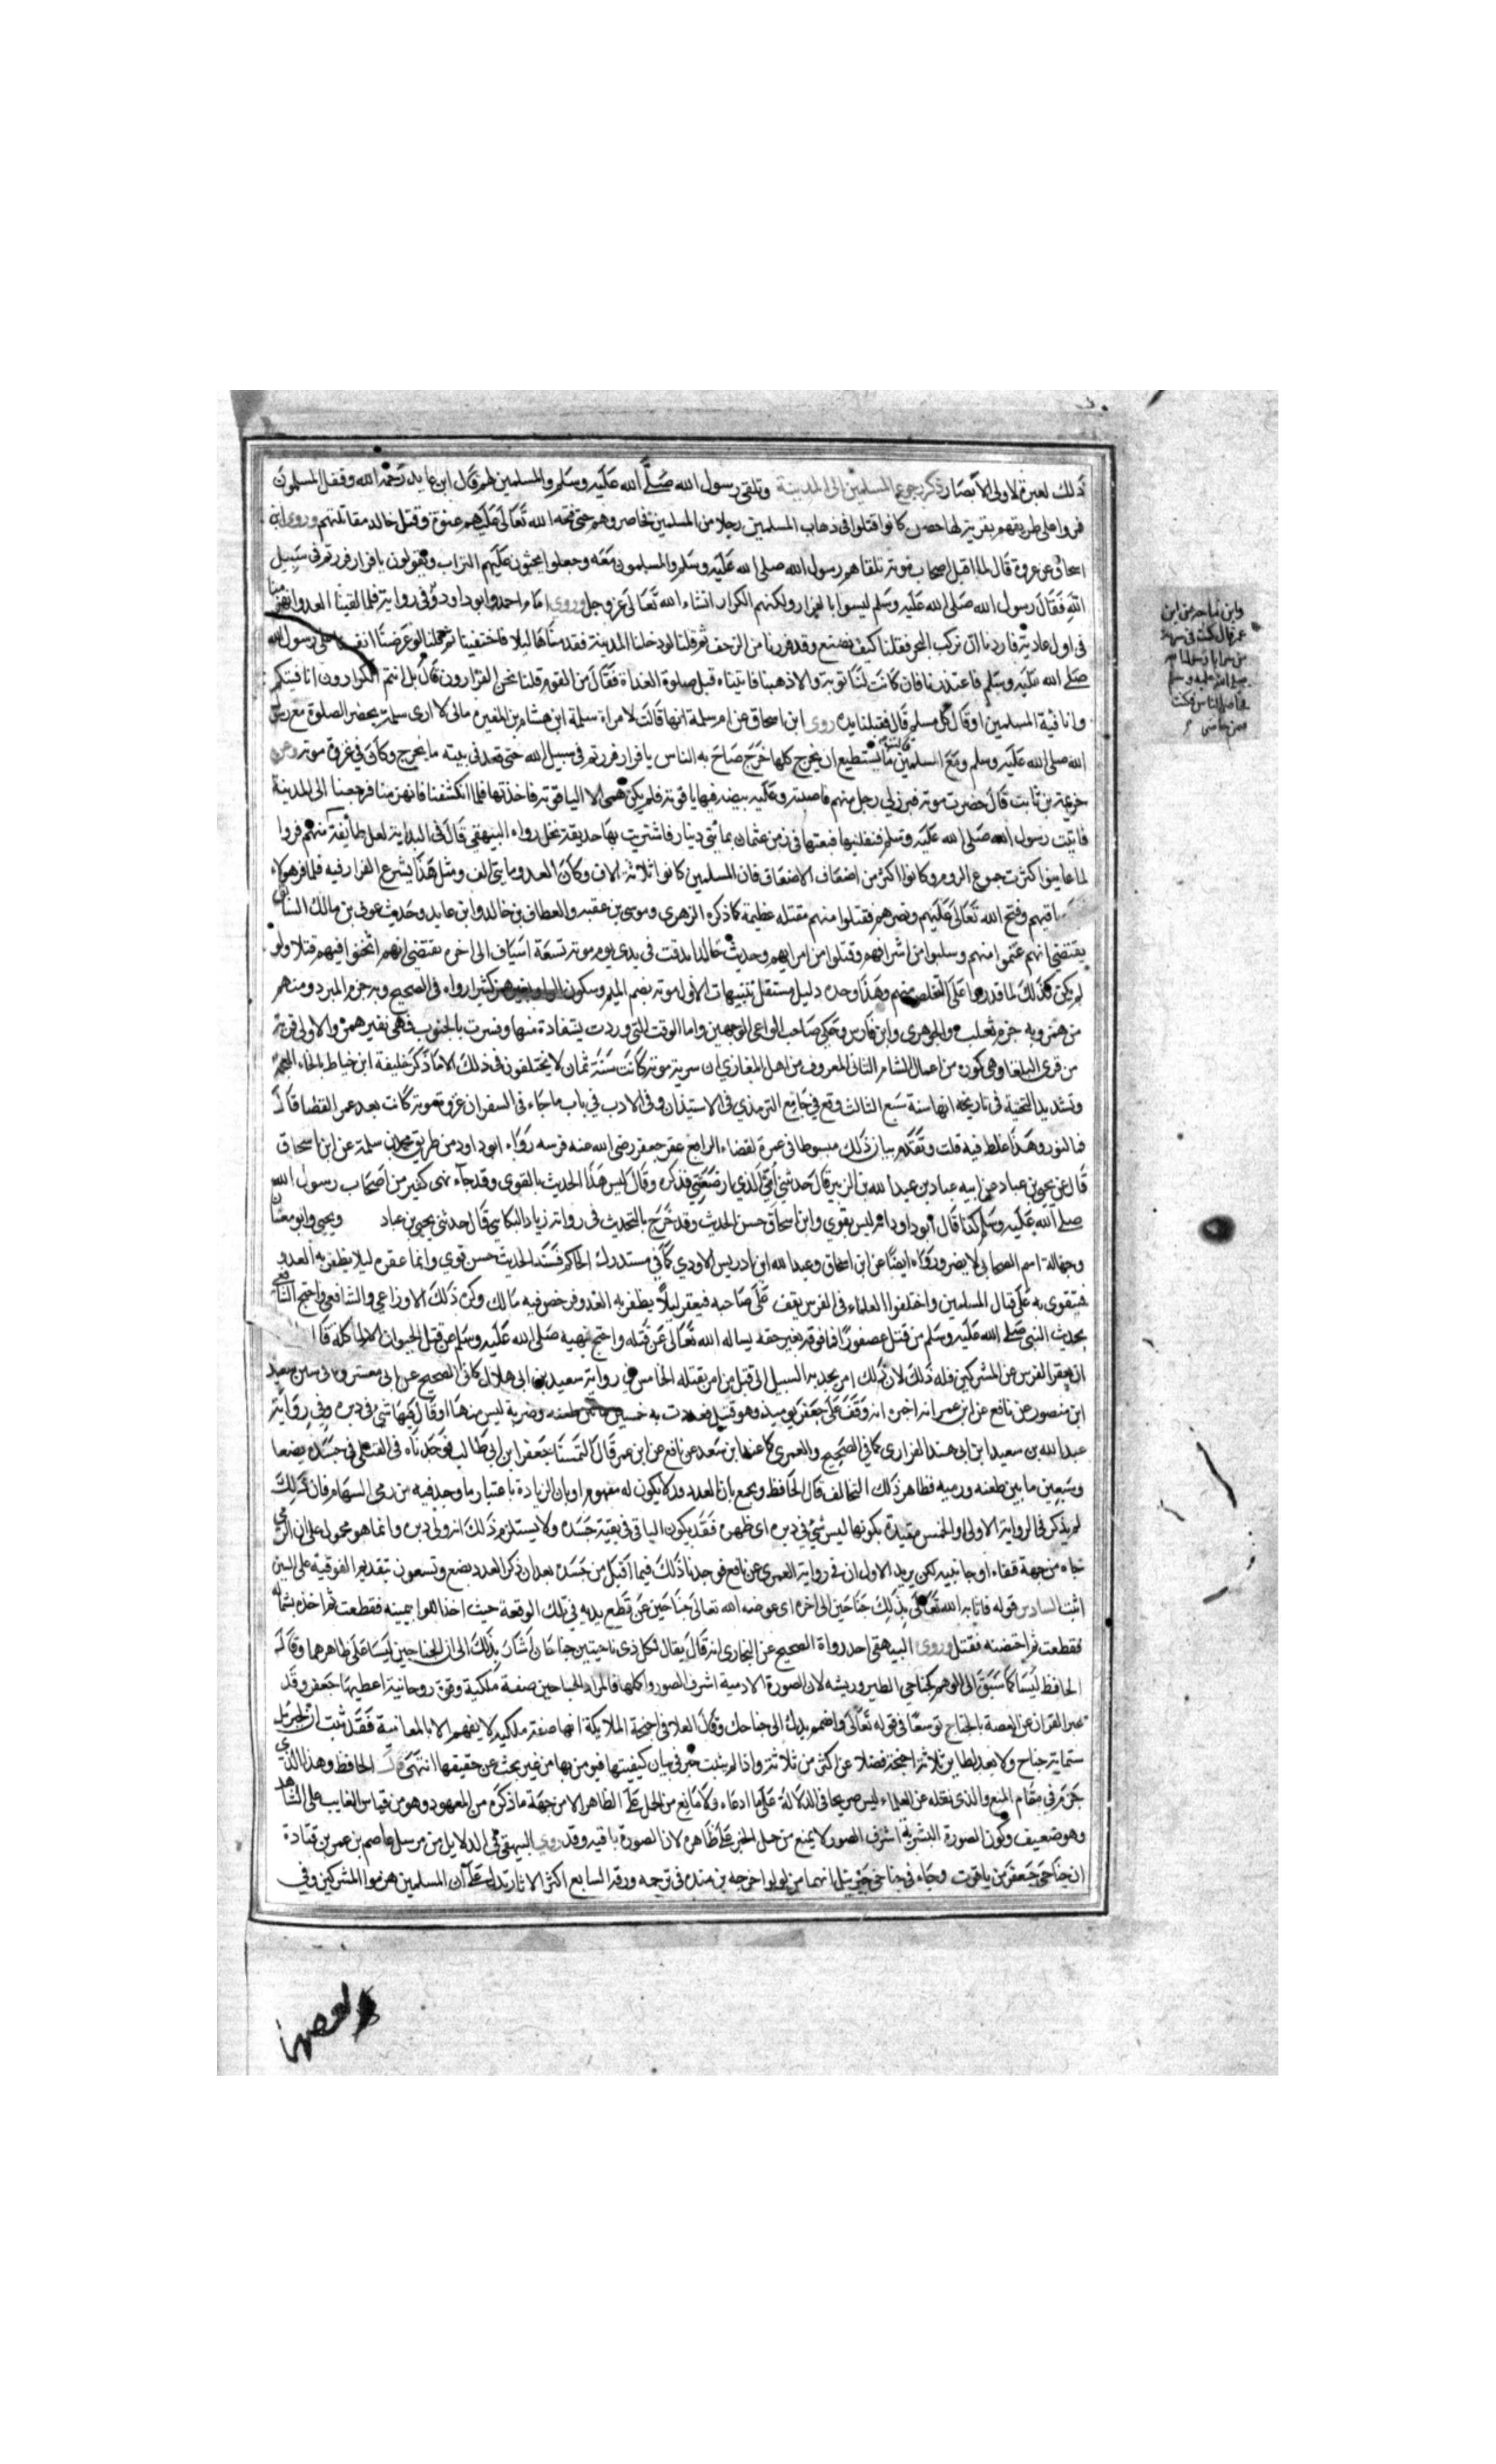 ذلك لعبرة لاولى الابصار ذكر رجوع المسلمين الى المدينة وتلقى رسول الله صلى الله عليه وسلم والمسلمين لهم قال ابن عايد رحمه الله وقفل المسلمون
فمروا على طريقهم بقرية لها حصن كانوا قتلوا فى ذهاب المسلمين رجلا من المسلمين فحاصروهم حتى فتحه الله تعالى عليهم عنوة وقتل خالد مقاتلتهم وروى ابن
اسحاق عن عروة قال لما اقبل اصحاب موته تلقاهم رسول الله صلى الله عليه وسلم والمسلمون معه وجعلوا يحثون عليهم التراب ويقولون يا فرار فررتم فى سبيل
الله فقال رسول الله صلى الله عليه وسلم ليسوا بالفرار ولكنهم الكرار انشاء الله تعالى عز وجل وروى امام احمد وابو داود وفى رواية فلما لقينا العدو انهزمنا
فى اول عادية فاردنا ان نركب البحر فقلنا كيف نصنع وقد فررنا من الزحف ثم قلنا لو دخلنا المدينة فقدمناها ليلا فاختفينا ثم قلنا لو عرضنا انفسنا على رسول الله
صلى الله عليه وسلم فاعتذرنا فان كانت لنا توبة والا ذهبنا فاتيناه قبل صلوة الغداة فقال من القوم قلنا نحن الفرارون قال بل انتم الكرارون انا فيتكم
وانا فية المسلمين او قال كل مسلم قال فقبلنا يده روى ابن اسحاق عن ام سلمة انها قالت لامراة سلمة ابن هشام بن المغيره مالى لا ارى سلمة يحضر الصلوة مع رسول
الله صلى الله عليه وسلم ومع المسلمين قالت ما يستطيع ان يخرج كلما خرج صاح به الناس يا فرار فررتم فى سبيل الله حتى قعد فى بيته ما يخرج وكان فى غزوة موته وعن
خزيمة بن ثابت قال حضرت موته فبرز لى رجل منهم فاصبته وعليه بيضه فيها ياقوتة فلم يكن همى الا الياقوتة فاخذتها فلما انكشفنا فانهزمنا فرجعنا الى المدينة
فاتيت رسول الله صلى الله عليه وسلم فنفلنيها فبعتها فى زمن عثمان بمائتى دينار فاشتريت بها حديقة نخل رواه البيهقي قال فى البداية لعل طائفة منهم فروا
لما عاينوا كثرت جموع الروم وكانوا اكثر من اضعاف الاضعاف فان المسلمين كانوا ثلاثة الاف وكان العدو مايتى الف ومثل هذا يشرع الفرار فيه فلما فر هولاء
باقيهم وفتح الله تعالى عليهم ونصرهم فقتلوا منهم مقتله عظيمة كما ذكره الزهرى وموسى بن عقبه والعطاف بن خالد وابن عايد وحديث عوف بن مالك السابق
يقتضى انهم غنموا منهم وسلبوا من اشرافهم وقتلوا من امرايهم وحديث خالد اندقت فى يدى يوم موته تسعة اسياف الى اخره يقتضى انهم اثخنوا فيهم قتلا ولو
لم يكن كذلك لما قدروا على التخلص منهم وهذا وحده دليل مستقل تنبيهات الاول موته بضم الميم وسكون الواو بغير همز كثير رواه فى الصحيح وبه جزم المبرد ومنهم
من همز وبه جزم ثعلب والجوهرى وابن فارس وحكى صاحب الواعى الوجهين واما الوقت التى وردت يستغادة منها وفسرت بالجنوب فهى بغير همز والاولى قرية
من قرى البلقا وهى كوره من اعمال الشام الثانى المعروف من اهل المغازي ان سرية موته كانت سنة ثمان لا يختلفون فى ذلك الا ما ذكر خليفة ابن خياط بالخاء المعجمة
وتشديد التحتية فى تاريخه انها سنة سبع الثالث وقع فى جامع الترمذي فى الاستيذان وفى الادب فى باب ما جاء فى السفر ان غزوة موته كانت بعد عمر القضا قال
فى النور وهذا غلط فيه قلت وتقدم بيان ذلك مبسوطا فى عمرة لقضاء الرابع عقر جعفر رضى الله عنه فرسه رواه ابو داود من طريق محمد بن سلمة عن ابن اسحاق
قال عن يحيى بن عباد عن ابيه عباد بن عبد الله بن الزبير قال حدثنى ابى الذي ارضعتنى فذكره وقال ليس هذا الحديث بالقوى وقد جاء نهى كثير من اصحاب رسول الله
صلى الله عليه وسلم كذا قال ابو داود انه ليس بقوي وابن اسحاق حسن الحديث وقد خرج بالتحديث فى رواية زياد البكاىي قال حدثنى يحيى بن عباد ويحيى وابوه ثقتان
وجهالة اسم الصحابى لا يضر ورواه ايضا عن ابن اسحاق وعبد الله ابن ادريس الاودي كما فى مستدرك الحاكم فسند الحديث حسن قوي وانما عقره ليلا يظفر به العدو
فيتقوى به على قتال المسلمين واختلفوا العلماء فى الفرس يقف على صاحبه فيعقر ليلا يظفر به العدو فرخص فيه مالك وكره ذلك الاوزاعي والشافعى واحتج الشافعى
بحديث النبى صلى الله عليه وسلم من قتل عصفورا فما فوقه بغير حقه يساله الله تعالى عن قتله واحتج بنهيه صلى الله عليه وسلم عن قتل الحيوان الا لماكله قال
ان يعقر الفرس عن المشركين فله ذلك لان ذلك امر يجد به السبيل الى قتل من امر بقتله الخامس فى رواية سعيد بن ابى هلال كما فى الصحيح عن ابى معشر وفى سنن سعيد
ابن منصور عن نافع عن ابن عمر انه اخبره انه وقف على جعفر يوميذ وهو قتيل فعددت به خسين ما بين طعنه وضربة ليس منها او قال فيها شى فى دبره وفى رواية
عبد الله بن سعيد ابن ابى هند الفزارى كما فى الصحيح والعمرى كما عند ابن سعد عن نافع عن ابن عمر قال التمسنا جعفر ابن ابي طالب فوجدناه فى القتلى فى جسده بضعا
وسبعين ما بين طعنه ورميه فظاهر ذلك التخالف قال الحافظ ويجمع بان العدد قد لا يكون له مفهوم او بان الزيادة باعتبار ما وجد فيه من رمى السهام فان ذلك
لم يذكر فى الرواية الاولى والخمس مقيدة بكونها ليس شى فى دبره اى ظهره فقد يكون الباقى فى بقية جسده ولا يستلزم ذلك انه ولى دبره وانما هو محمول على ان الرمى
جاه من جهة قفاه او جانبيه لكن يريد الاول ان فى رواية العمرى عن نافع فوجدنا ذلك فيما اقبل من جسده بعد ان ذكر العدد بضع وتسعون بتقديم الفوقية على السين
اثبت السادس قوله فاثابه الله تعالى بذلك جناحين الى اخره اى عوضه الله تعالى جناحين عن قطع يديه فى تلك الوقعة حيث اخذ اللوا بيمينه فقطعت ثم اخذه بشماله
فقطعت ثم احتضنه فقتل وروى البيهقى احد رواة الصحيح عن البخارى انه قال يقال لكل ذى ناحيتين جناحان اشار بذلك الى ان الجناحين ليسا على ظاهرهما وقال
الحافظ ليسا كما سبق الى الوهم كجناحي الطير وريشه لان الصورة الادمية اشرف الصور واكملها فالمراد بالجناحين صفة ملكية وقوة روحانية اعطيها جعفر وقد
عبر القران عن العضة بالجناح توسعا فى قوله تعالى واضمم يدك الى جناحك وقال العلا فى اجنحة الملايكة انها صفة ملكيه لا يفهم الا بالمعانية فقد ثبت ان لجبريل
ستماية جناح ولا يعهد لطاير ثلاثة اجنحة فضلا عن اكثر من ثلاثة واذا لم يثبت خبر فى بيان كيفيتها فيومن بها من غير بحث عن حقيقتها انتهى قال الحافظ وهذا الذى
جزم فى مقام المنع والذى نقله عن العلماء ليس صريحا فى الدلالة على ما ادعاه ولا مانع من الحمل على الظاهر الا من جهة ما ذكره من المعهود وهو من قياس الغايب على الشاهد
وهو ضعيف وكون الصورة البشرية اشرف الصور لا يمنع من حمل الخبر على ظاهره لان الصورة باقيه وقد روى البيهقى فى الدلايل من مرسل عاصم بن عمر بن قتادة
ان جناحى جعفر من ياقوت وجاء فى جناحى جبريل انهما من لولو اخرجه بن منده فى ترجمه ورقه السابع اكثر الاثار تدل على ان المسلمين هزموا المشركين وفى
وابن ماجه عن ابن
عمر قال كنت فى سرية
من سرايا رسول الله
صلى الله عليه وسلم
فحاص الناس فكنت
فمن حاص
بعضها